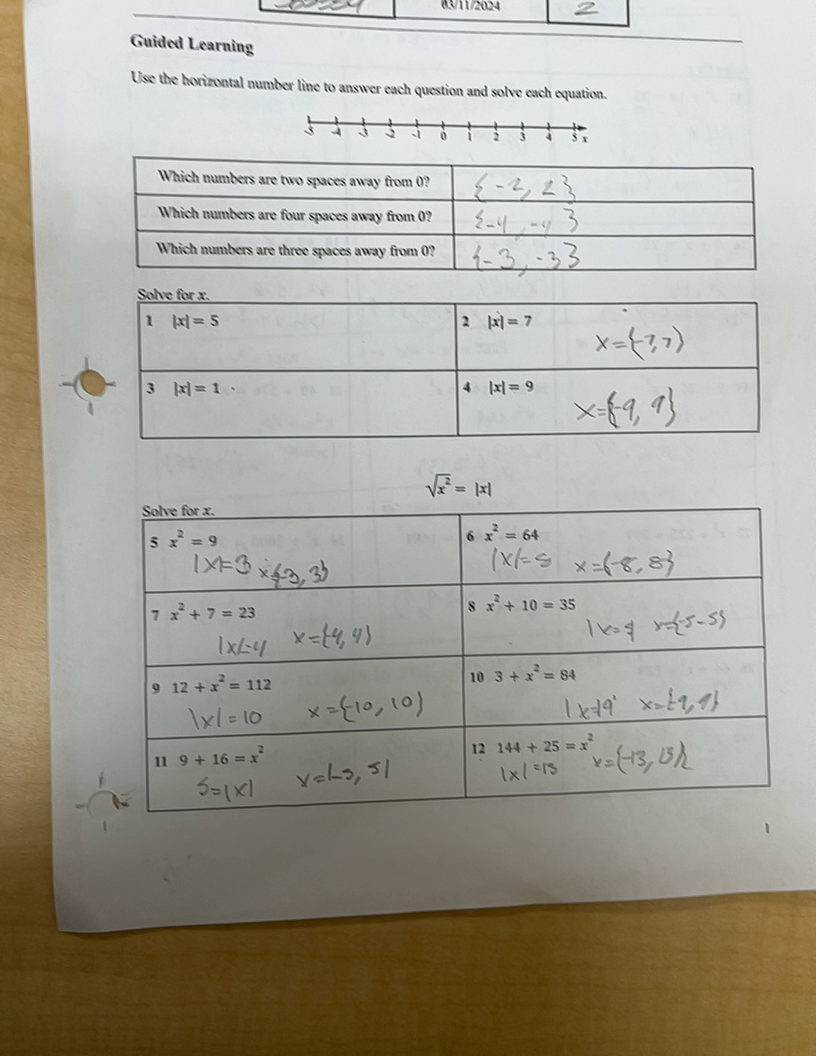 03/11/2024
2
Guided Learning
Use the horizontal number line to answer each question and solve each equation.
-5 -4 -3 -2 -1 0 1 2 3 4 5 x
Which numbers are two spaces away from 0? {-2, 2}
Which numbers are four spaces away from 0? {-4, -4}
Which numbers are three spaces away from 0? {-3, -3}
Solve for x.
1 |x| = 5
2 |x| = 7
x={-7,7}
3 |x| = 1
4 |x| = 9
x={-9, 9}
√x² = |x|
Solve for x.
5 x² = 9
|x|=3 x{-3, 3}
6 x² = 64
|x|=8 x={-8, 8}
7 x² + 7 = 23
|x|=4 x={4, 4}
8 x² + 10 = 35
x={-5-5}
9 12 + x² = 112
|x| = 10 x={-10, 10}
10 3 + x² = 84
|x|=9 x={9, 9}
11 9 + 16 = x²
5=|x|
12 144 + 25 = x²
|x|=13 x={-13, 13}
1